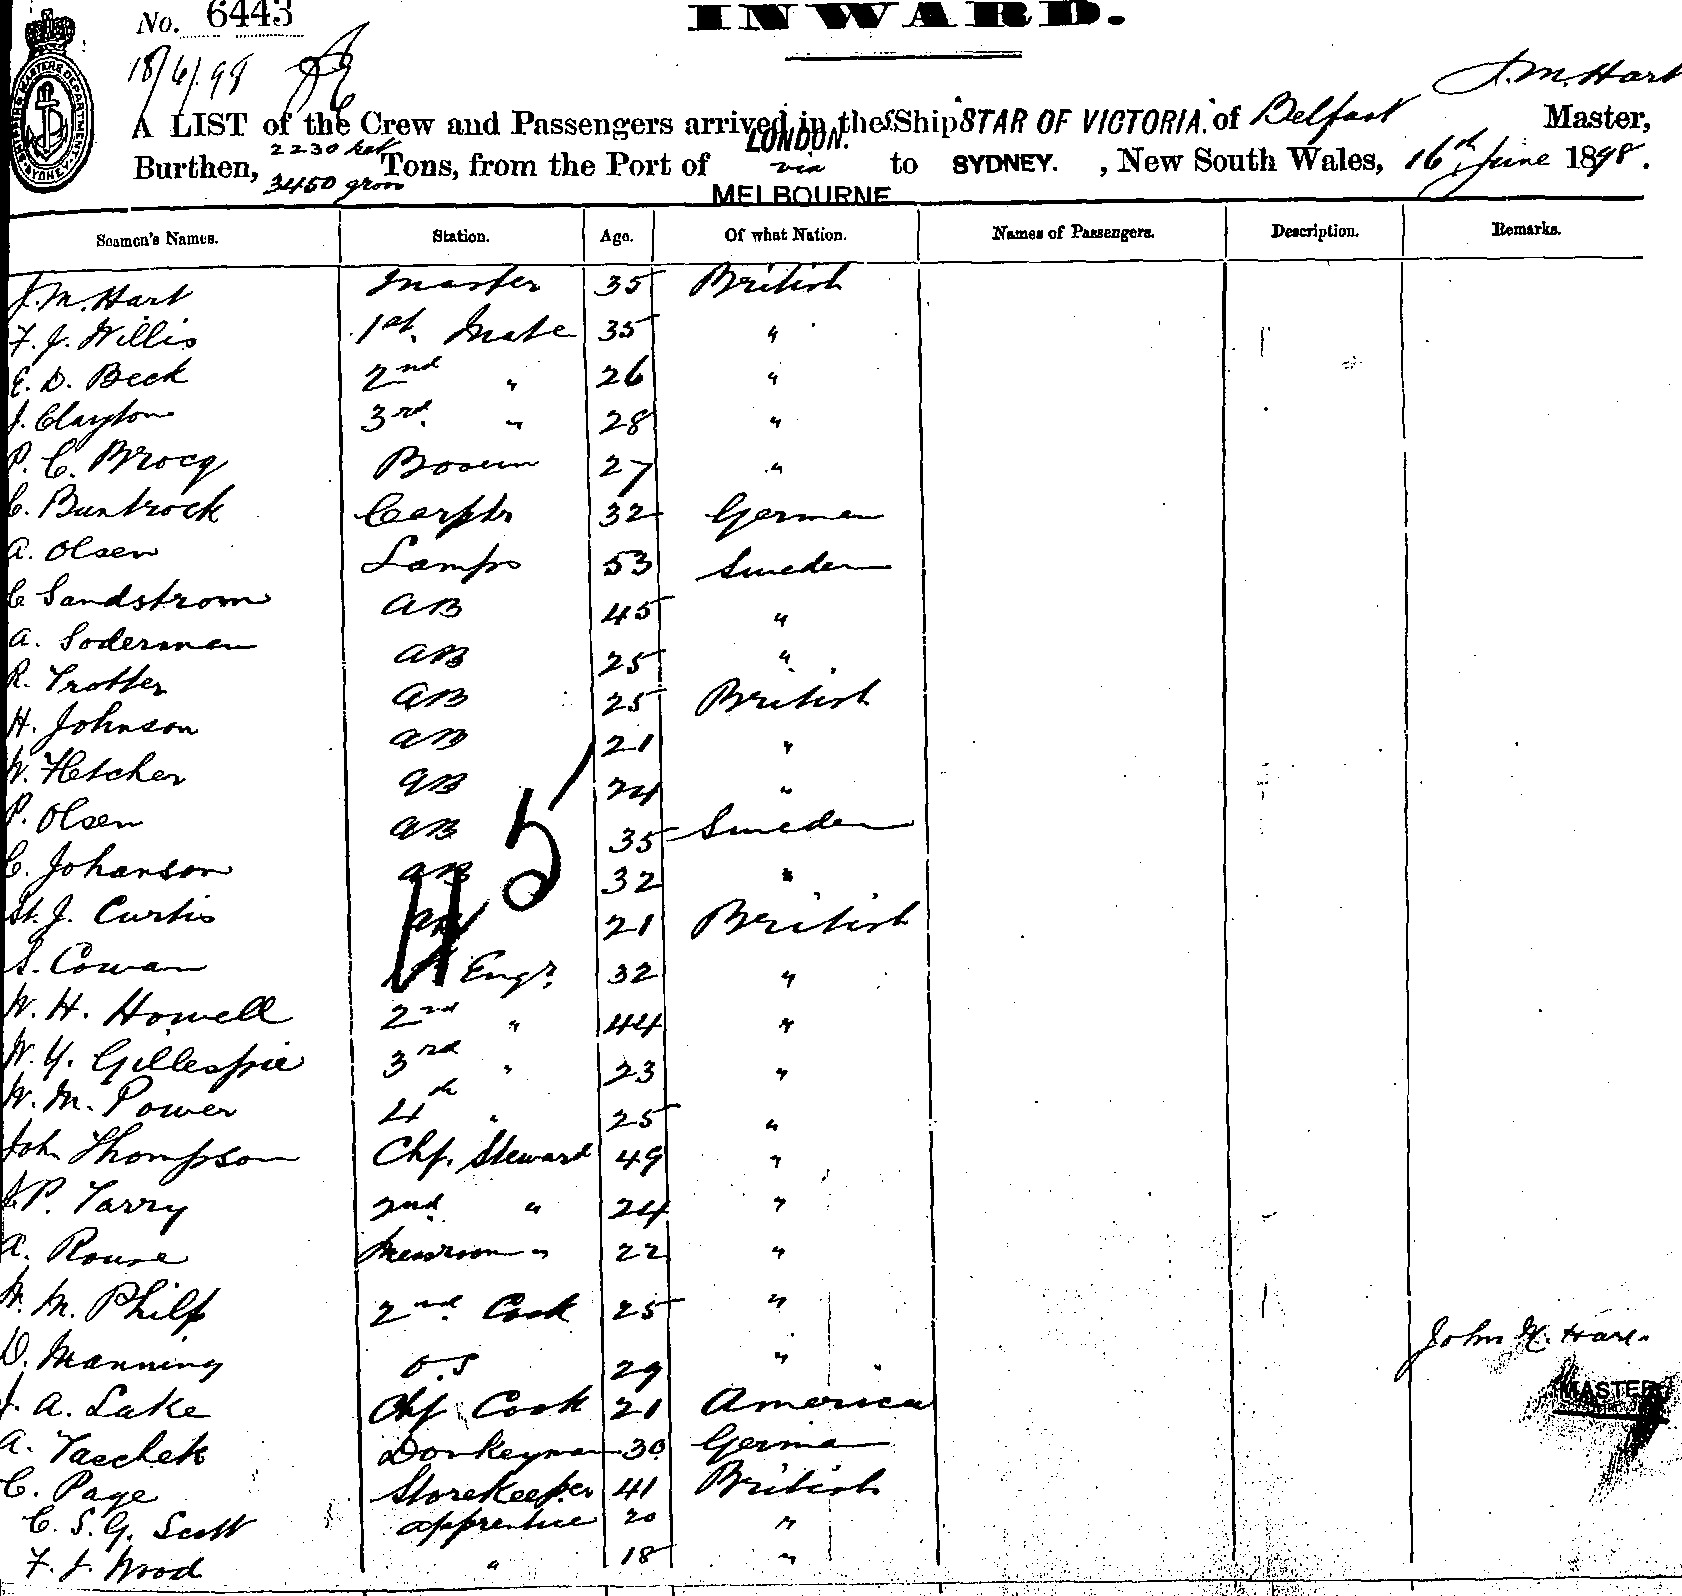 No. 6443
INWARD.
18/6/98
SHIPPING MASTERS DEPARTMENT SYDNEY
J. M. Hart
A LIST of the Crew and Passengers arrived in the S. Ship "STAR OF VICTORIA" of Belfast Master,
Burthen, 2230 net 3450 gross Tons, from the Port of LONDON. via MELBOURNE to SYDNEY. , New South Wales, 16th June 1898.
Seamen's Names. Station. Age. Of what Nation. Names of Passengers. Description. Remarks.
J. M. Hart Master 35 British
F. J. Willis 1st. Mate 35 "
E. D. Beck 2nd " 26 "
J. Clayton 3rd. " 28 "
P. C. Brocq Bosun 27 "
C. Buntrock Carptr 32 German
A. Olsen Lamps 53 Sweden
C Sandstrom AB 45 "
A. Soderman AB 25 "
R. Trotter AB 25 British
H. Johnson AB 21 "
W. Fletcher AB 24 "
P. Olsen AB 35 Sweden
C. Johanson AB 32 "
St. J. Curtis 21 British
S. Cowan Engr. 32 "
W. H. Howell 2nd " 44 "
W. Y. Gillespie 3rd " 23 "
W. M. Power 4th " 25 "
John Thompson Chf. Steward 49 "
P. Tarry 2nd. " 24 "
A. Rouse Messroom " 22 "
W. M. Philp 2nd Cook 25 "
D. Manning O.S 29 "
J. A. Lake Chf Cook 21 America
A. Taschek Donkeyman 30 German
C. Page Storekeeper 41 British
C. S. G. Scott apprentice 20 "
F. J. Wood " 18 "
John M. Hart.
MASTER